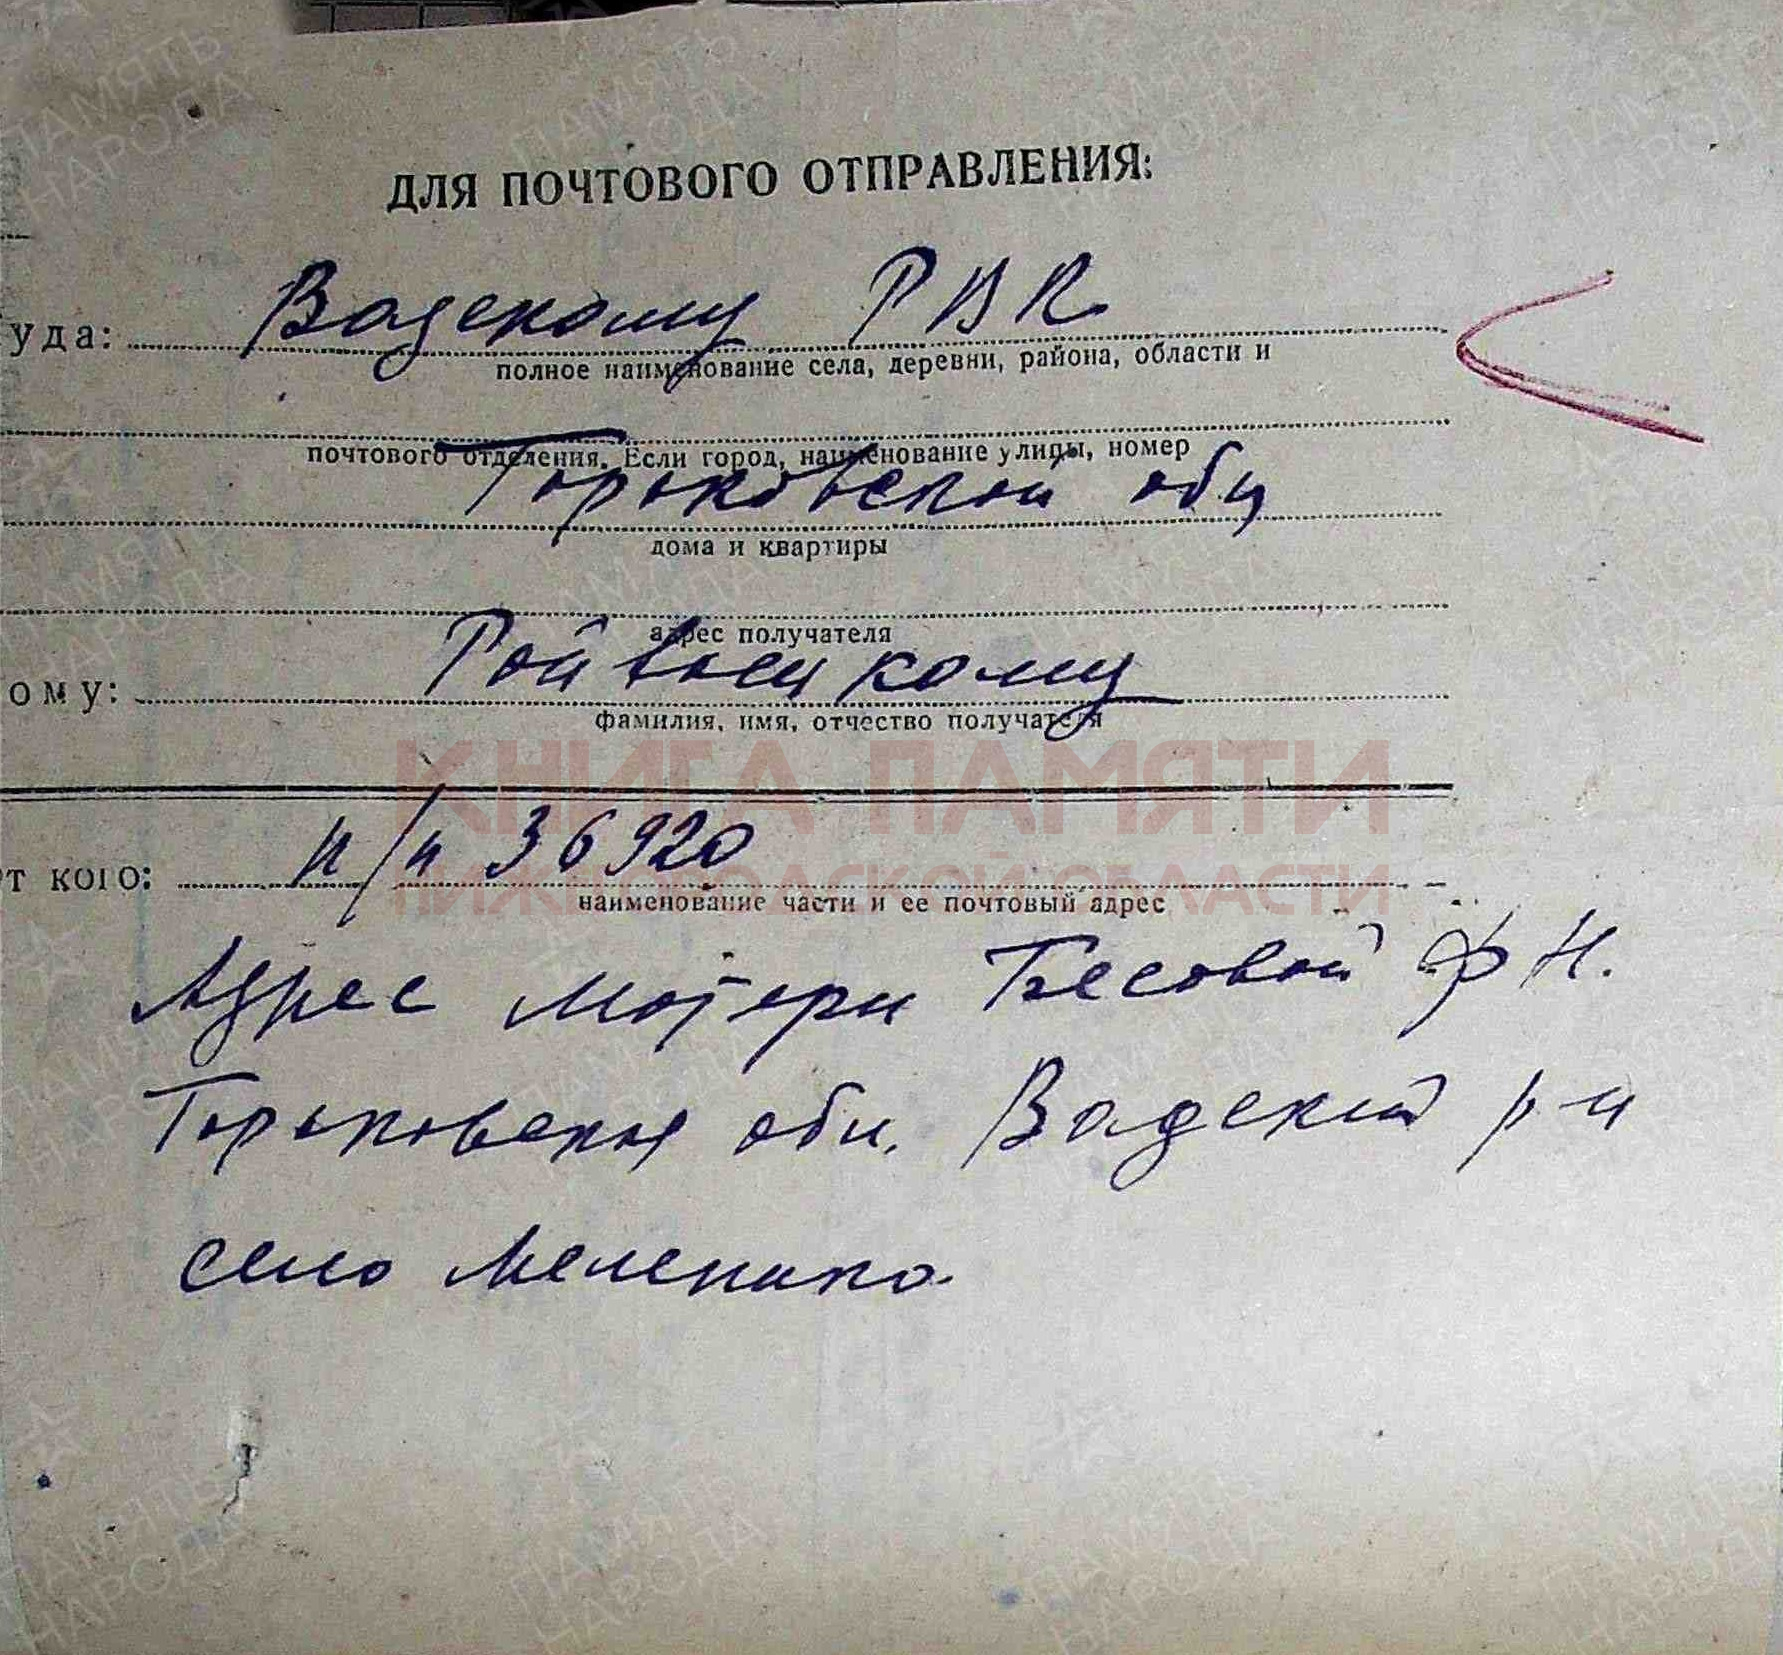 ДЛЯ ПОЧТОВОГО ОТПРАВЛЕНИЯ:
уда: Вадскому РВК
полное наименование села, деревни, района, области и
почтового отделения. Если город, наименование улицы, номер
Горьковской обл
дома и квартиры
адрес получателя
ому: Райвоенкому
фамилия, имя, отчество получателя
КНИГА ПАМЯТИ
НИЖЕГОРОДСКОЙ ОБЛАСТИ
т кого: п/п 36920
наименование части и ее почтовый адрес
Адрес матери Бесовой Ф Н.
Горьковская обл. Вадский р-н
село
ПАМЯТЬ НАРОДА